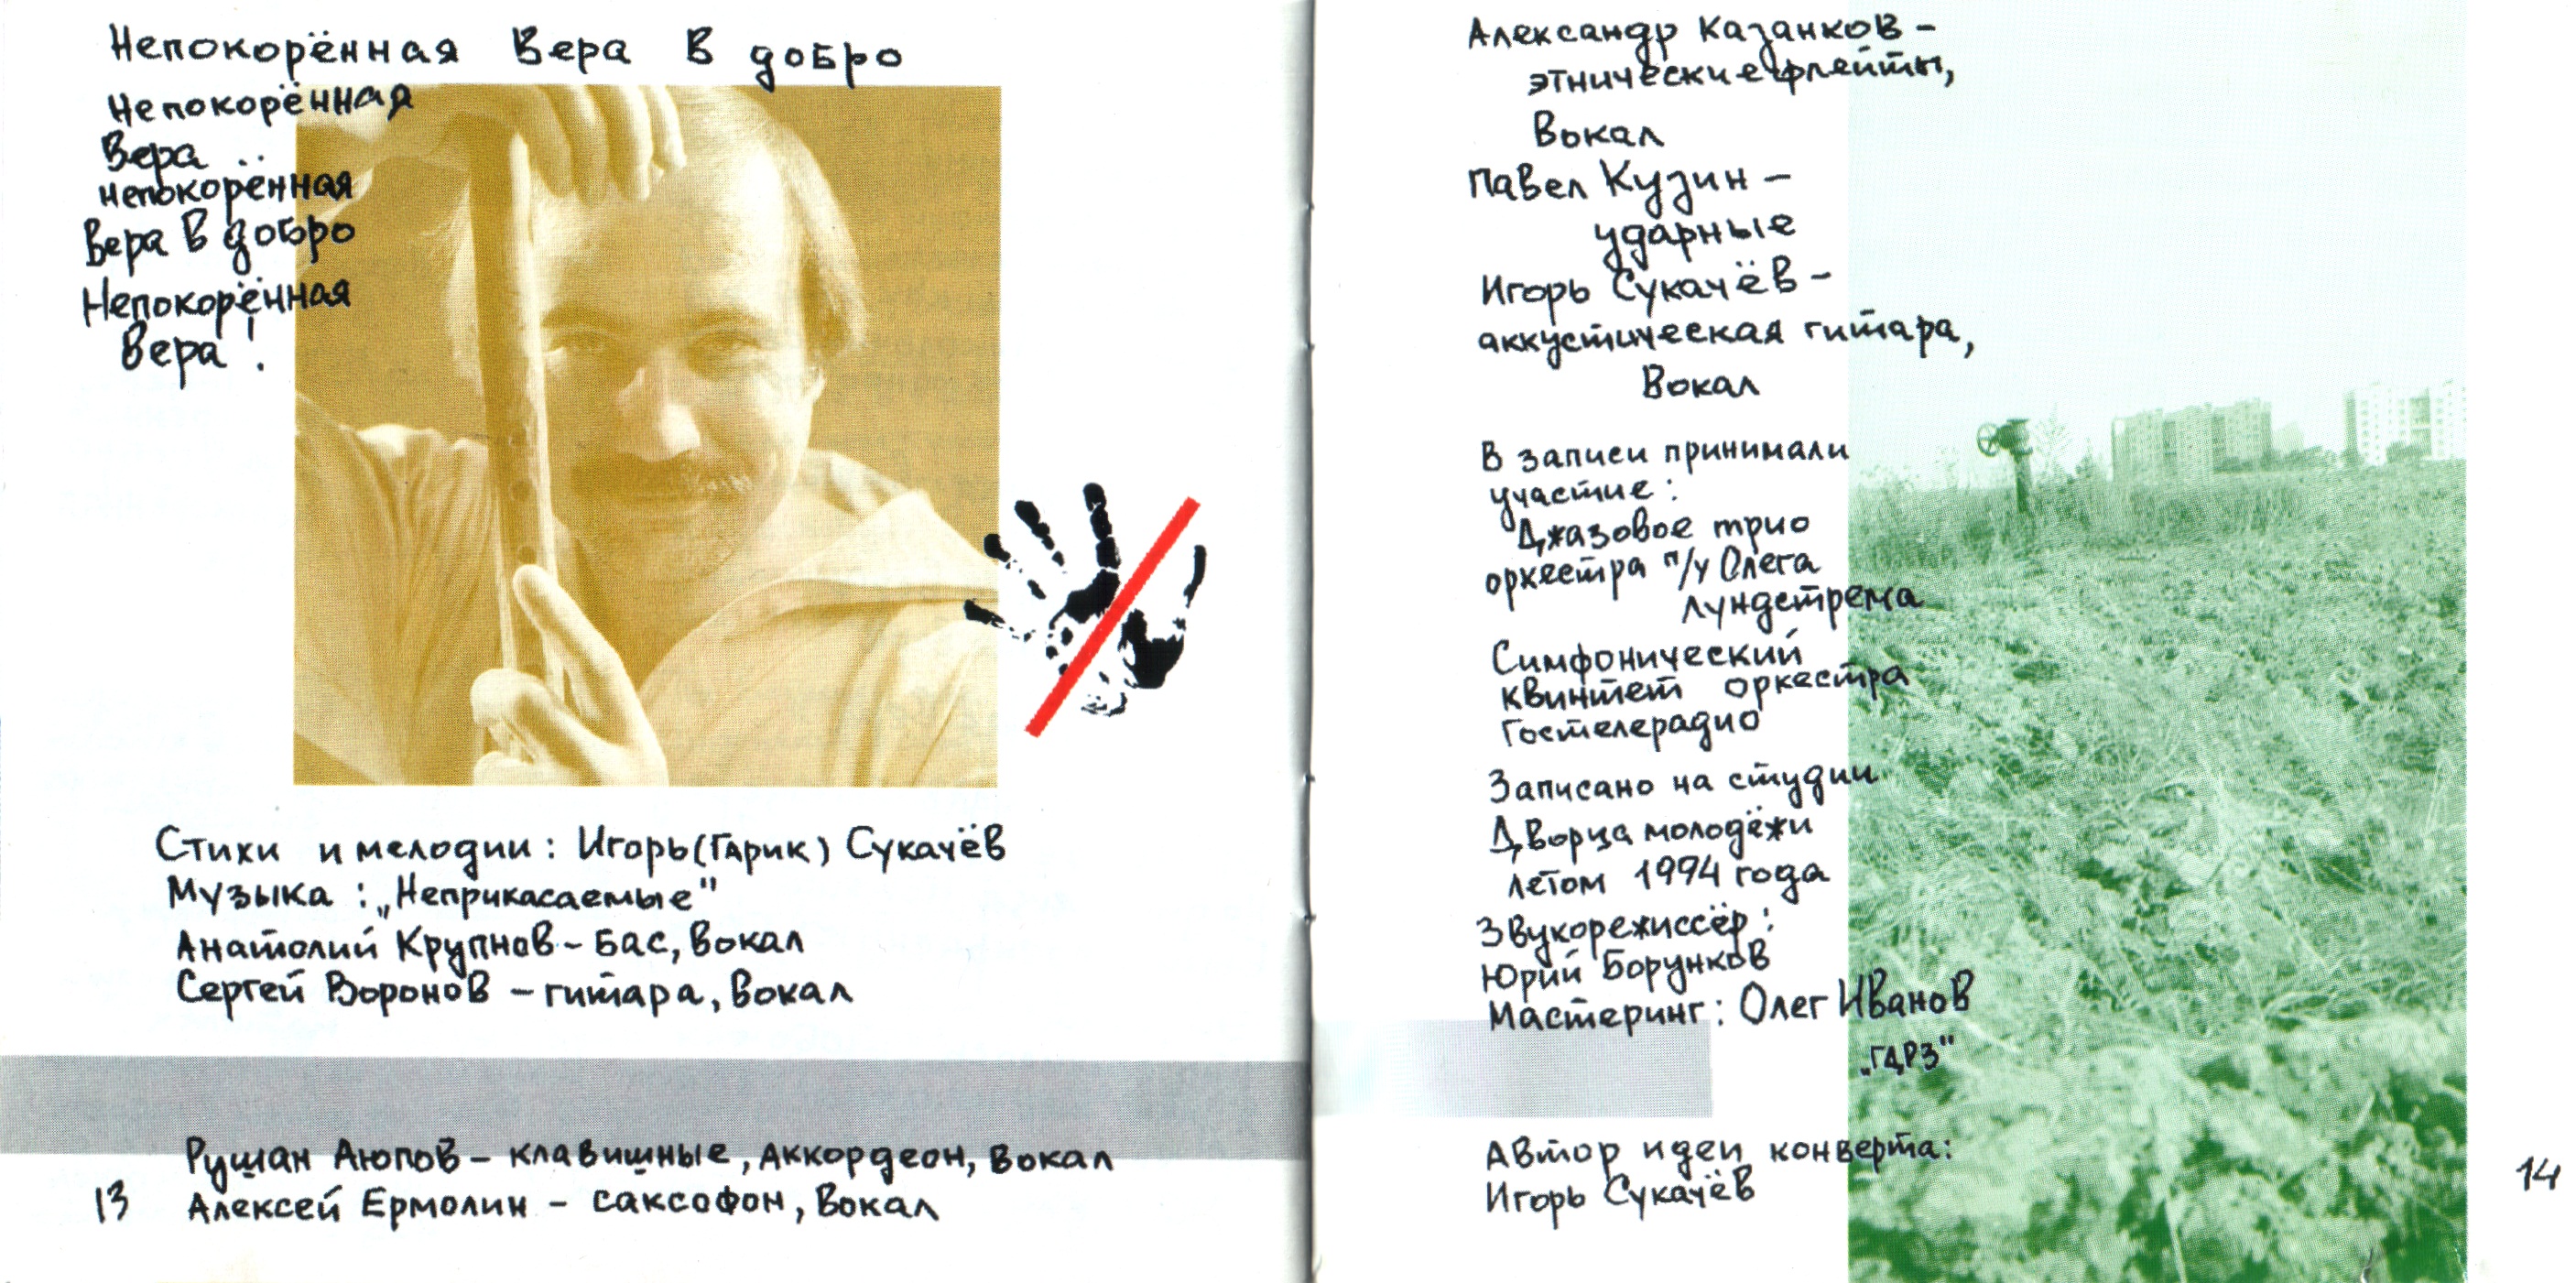 Непокорённая Вера в добро
Непокорённая
Вера
непокорённая
Вера в добро
Непокорённая
Вера!
Стихи и мелодии: Игорь (Гарик) Сукачёв
Музыка: „Неприкасаемые"
Анатолий Крупнов - бас, вокал
Сергей Воронов - гитара, вокал
Рушан Аюпов - клавишные, аккордеон, вокал
Алексей Ермолин - саксофон, вокал
13
Александр Казанков -
этнические флейты,
вокал
Павел Кузин -
ударные
Игорь Сукачёв -
аккустическая гитара,
вокал
В записи принимали
участие:
Джазовое трио
оркестра п/у Олега
Лундстрема
Симфонический
квинтет оркестра
Гостелерадио
Записано на студии
Дворца молодёжи
летом 1994 года
Звукорежиссёр:
Юрий Борунков
Мастеринг: Олег Иванов
„ГДРЗ"
Автор идеи конверта:
Игорь Сукачёв
14